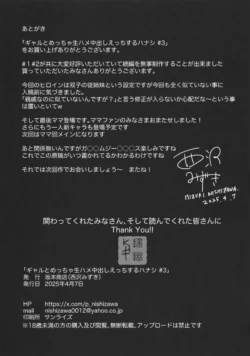 あとがき
『ギャルとめっちゃ生ハメ中出しえっちするハナシ #3』
をお買い上げありがとうございます。
#1 #2が共に大変好評いただいていて続編を無事制作することが出来ました
買っていただいたみなさんありがとうございます。
今回のヒロインは双子の従姉妹という設定ですが今回も全く似ていない事に
入稿前に気づきました。
「親戚なのに似てないなんですが？」と言う修正が入らないか心配だな～という事
は置いといてw
そして最後ママ登場ですー。ママファンのみなさまおまたせしました！
さらにもう一人新キャラも登場予定です
次回はママ回メインになります
あと関係無いんですがガ〇〇ムジー〇〇〇ス楽しみですね
これでこの原稿がいつ書かれてるかわかるわけですね
それでは次回作でお会いしましょう～　またね！
西沢
みずき
MIZUKI NISHIZAWA
2025.4.7
関わってくれたみなさん、そして読んでくれた皆さんに
Thank You!!
『ギャルとめっちゃ生ハメ中出しえっちするハナシ #3』
発　行　坂本商店(西沢みずき)
発行日　2025年4月7日
HP　https://x.com/p_nishizawa
mail　nishizawa0012@yahoo.co.jp
印刷所　サンライズ
※18歳未満の方の購入及び閲覧、無断転載、アップロードは禁止